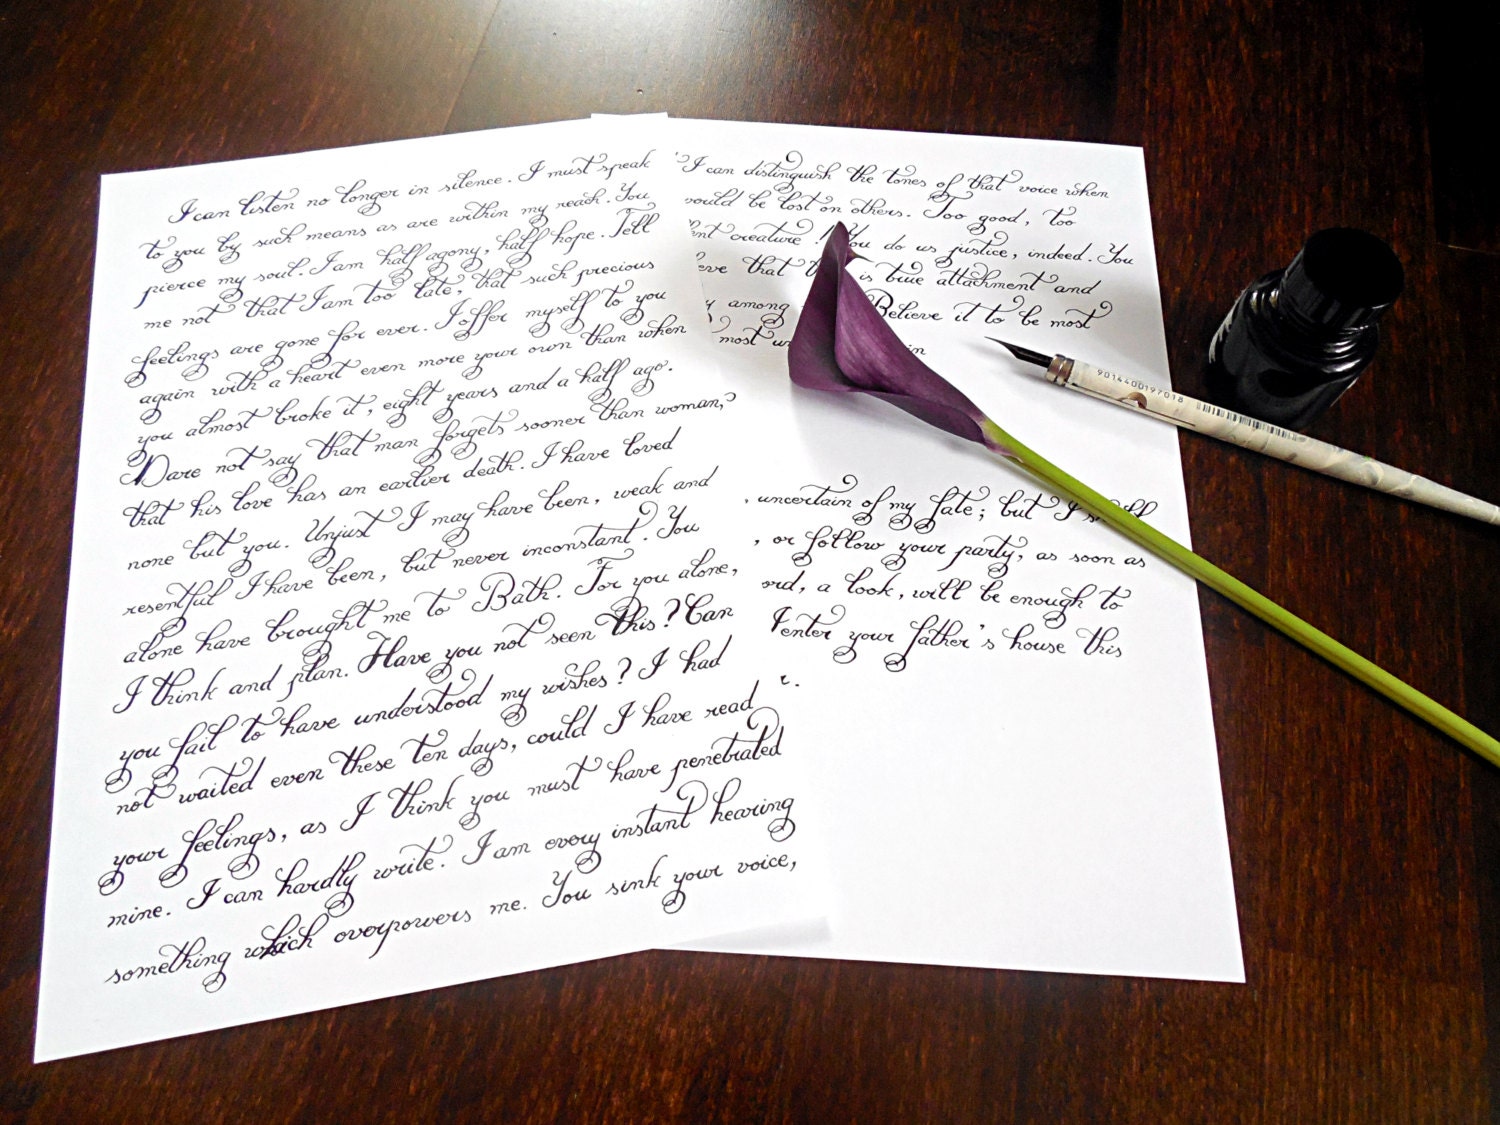 I can listen no longer in silence. I must speak
to you by such means as are within my reach. You
pierce my soul. I am half agony, half hope. Tell
me not that I am too late, that such precious
feelings are gone for ever. I offer myself to you
again with a heart even more your own than when
you almost broke it, eight years and a half ago.
Dare not say that man forgets sooner than woman,
that his love has an earlier death. I have loved
none but you. Unjust I may have been, weak and
resentful I have been, but never inconstant. You
alone have brought me to Bath. For you alone,
I think and plan. Have you not seen this? Can
you fail to have understood my wishes? I had
not waited even these ten days, could I have read
your feelings, as I think you must have penetrated
mine. I can hardly write. I am every instant hearing
something which overpowers me. You sink your voice,
I can distinguish the tones of that voice when
would be lost on others. Too good, too
creature! You do us justice, indeed. You
that is true attachment and
among Believe it to be most
most
, uncertain of my fate; but I
, or follow your party, as soon as
a look, will be enough to
I enter your father's house this
9014400197018